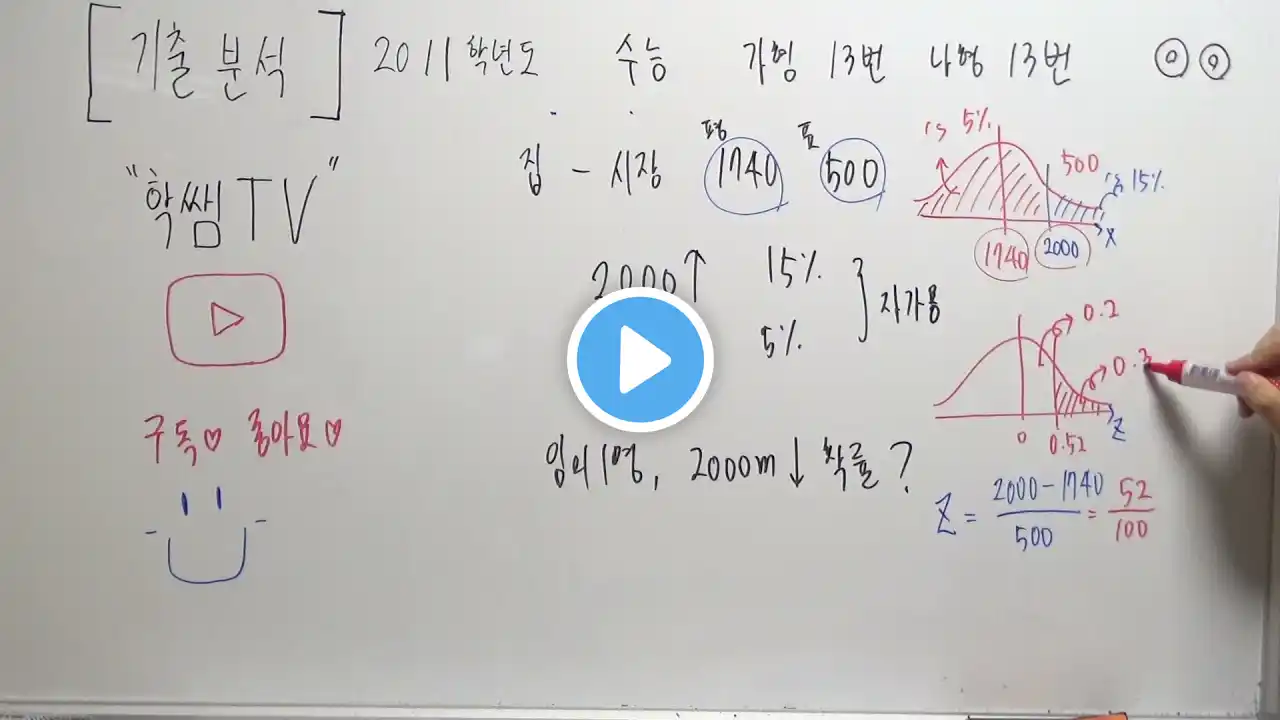 [기출 분석] 2011학년도 수능 가형 13번 나형 13번
"학쌤TV"
구독♡ 좋아요♡
집 - 시장 평 1740 표 500
2000↑ 15%
5%
자가용
임의 1명, 2000m↓ 확률?
5%
500
15%
1740
2000
X
0.2
0.3
0
0.52
Z
Z = 2000-1740 / 500 = 52 / 100